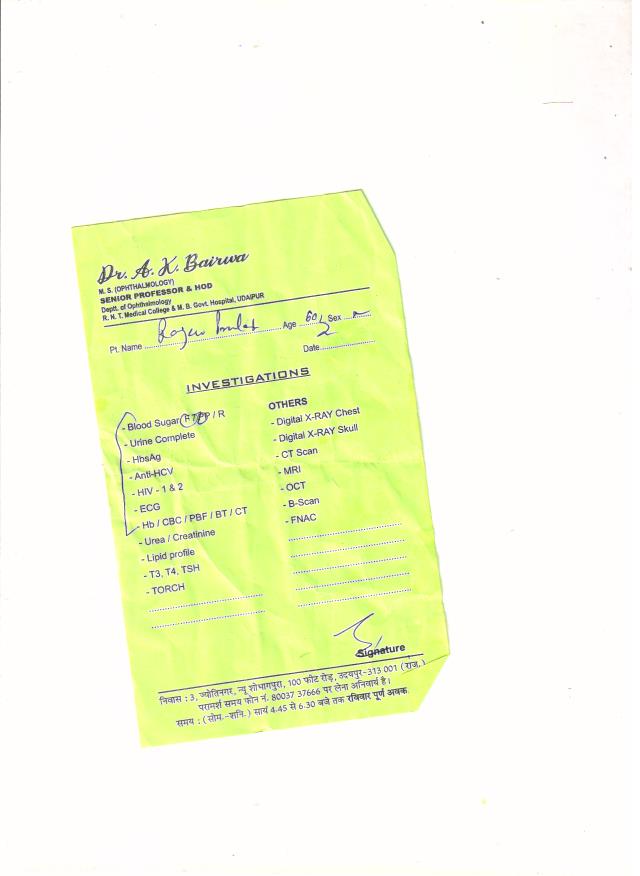 Dr. A. K. Bairwa
M. S. (OPHTHALMOLOGY)
SENIOR PROFESSOR & HOD
Deptt. of Ophthalmology
R. N. T. Medical College & M. B. Govt. Hospital, UDAIPUR
Pt. Name Age 60 Sex
Date
INVESTIGATIONS
- Blood Sugar F / PP / R
- Urine Complete
- HbsAg
- Anti-HCV
- HIV - 1 & 2
- ECG
- Hb / CBC / PBF / BT / CT
- Urea / Creatinine
- Lipid profile
- T3, T4, TSH
- TORCH
OTHERS
- Digital X-RAY Chest
- Digital X-RAY Skull
- CT Scan
- MRI
- OCT
- B-Scan
- FNAC
Signature
निवास : 3, ज्योतिनगर, न्यू शोभागपुरा, 100 फीट रोड़, उदयपुर-313 001 (राज.)
परामर्श समय फोन नं. 80037 37666 पर लेना अनिवार्य है।
समय : (सोम.-शनि.) सायं 4.45 से 6.30 बजे तक रविवार पूर्ण अवकाश